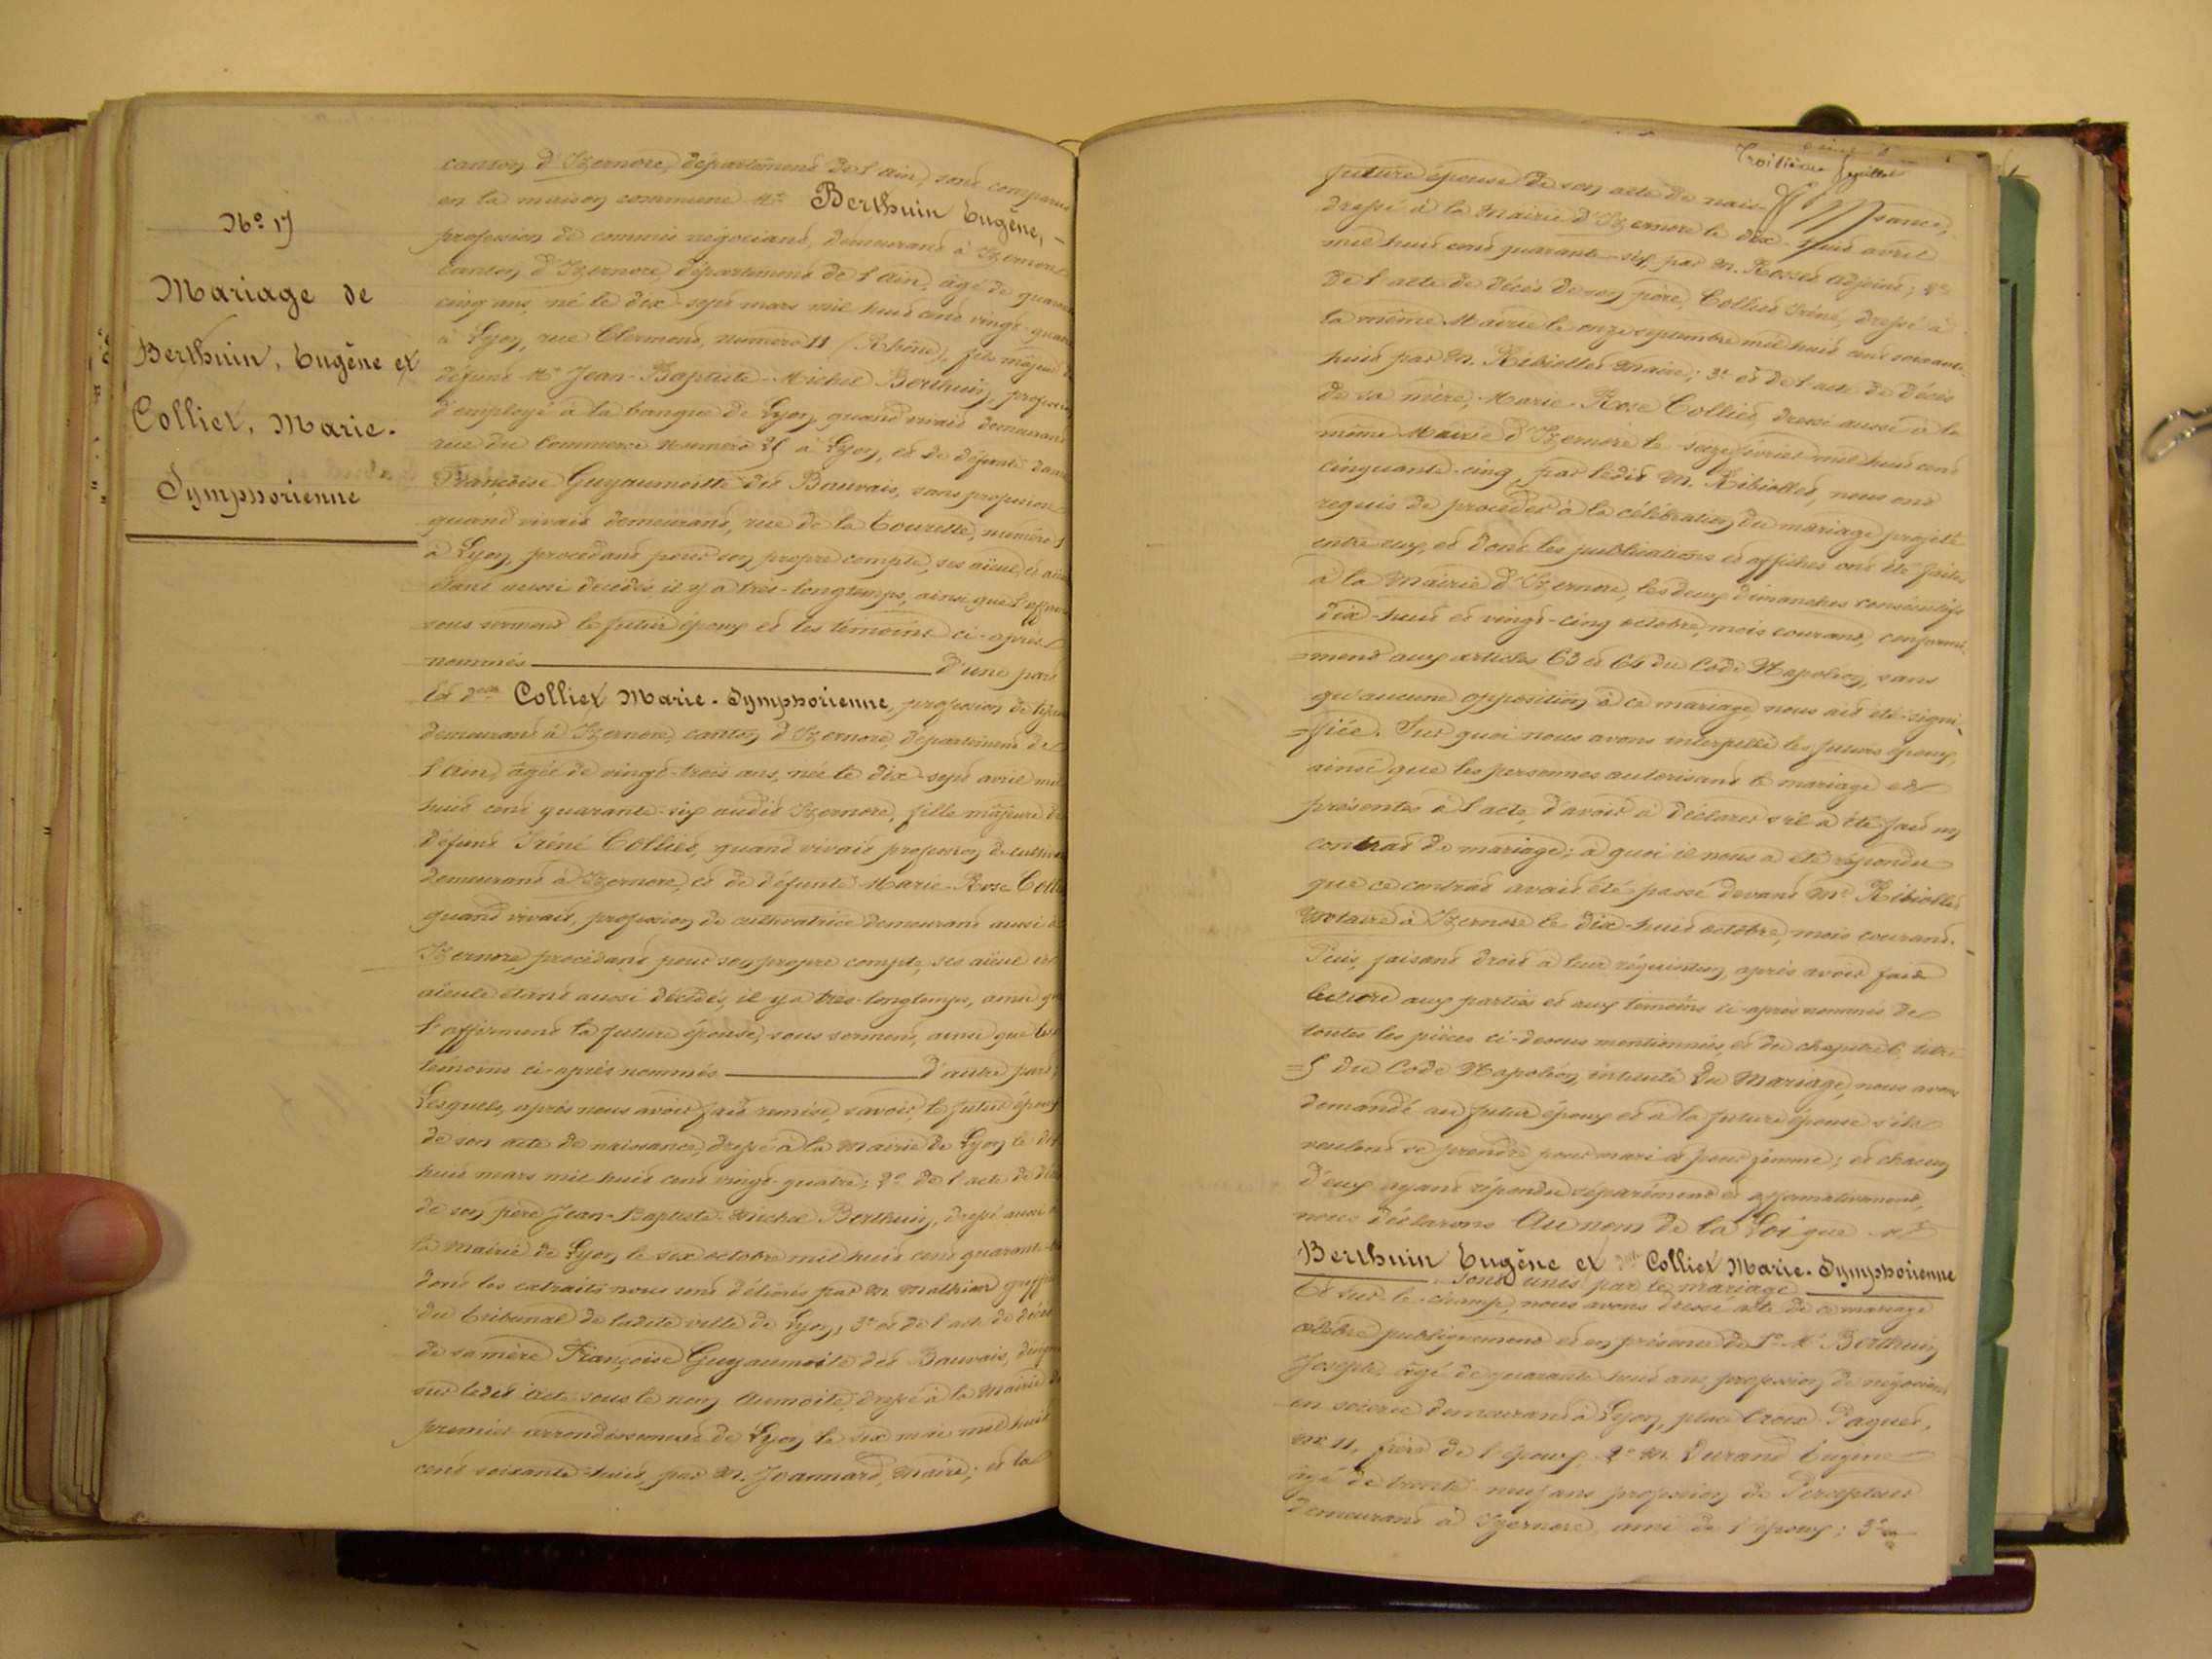 N° 17
Mariage de
Berthuin, Eugène et
Colliet, Marie-
Symphorienne
canton d'Izernore, département de l'Ain, sont comparus
en la maison commune Mr Berthuin Eugène, -
profession de commis négociant, demeurant à Izernore
canton d'Izernore, département de l'Ain, âgé de quarante
cinq ans, né le dix-sept mars mil huit cent vingt-quatre
à Lyon, rue Clermont, numéro 11 (Rhône), fils majeur de
défunt Mr Jean-Baptiste-Michel Berthuin, profession
d'employé à la banque de Lyon, quand vivait demeurant
rue du Commerce numéro 25 à Lyon, et de défunte dame
Françoise Guyaumoitte dit Bauvais, sans profession
quand vivait demeurant, rue de la Tourette, numéro 1
à Lyon, procédant pour son propre compte, ses aïeul et aïeule
étant aussi décédés il y a très-longtemps, ainsi que l'affirment
sous serment le futur époux et les témoins ci-après
nommés d'une part
Et Delle Colliet Marie-Symphorienne, profession de
demeurant à Izernore, canton d'Izernore, département de
l'Ain, âgée de vingt-trois ans, née le dix-sept avril mil
huit cent quarante-six audit Izernore, fille majeure de
défunt Iréné Colliet, quand vivait profession de cultivateur
demeurant à Izernore, et de défunte Marie-Rose Colliet
quand vivait, profession de cultivatrice demeurant aussi à
Izernore, procédant pour son propre compte, ses aïeul et
aïeule étant aussi décédés, il y a très-longtemps, ainsi que
l'affirment la future épouse, sous serment, ainsi que les
témoins ci-après nommés d'autre part;
Lesquels, après nous avoir fait remise, savoir, le futur époux
de son acte de naissance, dressé à la Mairie de Lyon le dix
huit mars mil huit cent vingt-quatre; 2° de l'acte de décès
de son père Jean-Baptiste-Michel Berthuin, dressé aussi à
la Mairie de Lyon le six octobre mil huit cent quarante-
dont les extraits nous sont délivrés par M. Mathian greffier
du tribunal de ladite ville de Lyon, 3° et de l'acte de décès
de sa mère Françoise Guyaumoite dit Bauvais, désignée
sur ledit acte sous le nom Aumoite, dressé à la Mairie du
premier arrondissement de Lyon le six mai mil huit
cent soixante-huit, par M. Joannard, Maire; et la
Troisième feuillet
future épouse de son acte de nais-sance,
dressé à la Mairie d'Izernore le dix-huit avril
mil huit cent quarante-six par M. Rosset adjoint; 2°
de l'acte de décès de son père, Colliet Iréné, dressé à
la même Mairie le onze septembre mil huit cent soixante-
huit par M. Ribiollet Maire; 3° et de l'acte de décès
de sa mère, Marie-Rose Colliet, dressé aussi à la
même Mairie d'Izernore le seize février mil huit cent
cinquante-cinq, par ledit M. Ribiollet, nous ont
requis de procéder à la célébration du mariage projeté
entre eux, et dont les publications et affiches ont été faites
à la Mairie d'Izernore, les deux dimanches consécutifs
dix-huit et vingt-cinq octobre, mois courant, conformé-
=ment aux articles 63 et 64 du Code Napoléon, sans
qu'aucune opposition à ce mariage nous ait été signi-
=fiée. Sur quoi nous avons interpellé les futurs époux,
ainsi que les personnes autorisant le mariage et
présentes à l'acte, d'avoir à déclarer s'il a été fait un
contrat de mariage; à quoi il nous a été répondu
que ce contrat avait été passé devant Me Ribiollet
Notaire à Izernore le dix-huit octobre, mois courant.
Puis, faisant droit à leur réquisition, après avoir fait
lecture aux parties et aux témoins ci-après nommés de
toutes les pièces ci-dessus mentionnées, et du chapitre 6, titre
=5 du Code Napoléon, intitulé Du Mariage, nous avons
demandé au futur époux et à la future épouse s'ils
veulent se prendre pour mari et pour femme; et chacun
d'eux ayant répondu séparément et affirmativement,
nous déclarons Au nom de la Loi que Mr
Berthuin Eugène et Delle Colliet Marie-Symphorienne
sont unis par le mariage
Et sur-le-champ, nous avons dressé acte de ce mariage
célébré publiquement et en présence de 1° Mr Berthuin
Joseph, âgé de quarante huit ans, profession de négociant
en soierie demeurant à Lyon, place Croix Paquet,
n° 11, frère de l'époux, 2° M. Durand Eugène
âgé de trente-neuf ans profession de Percepteur
demeurant à Izernore, ami de l'époux; 3°